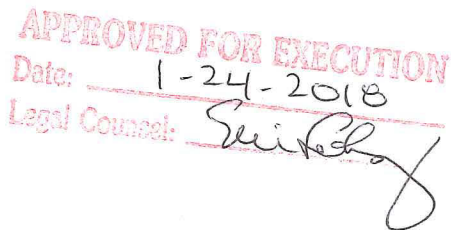 APPROVED FOR EXECUTION
Date: 1-24-2018
Legal Counsel: